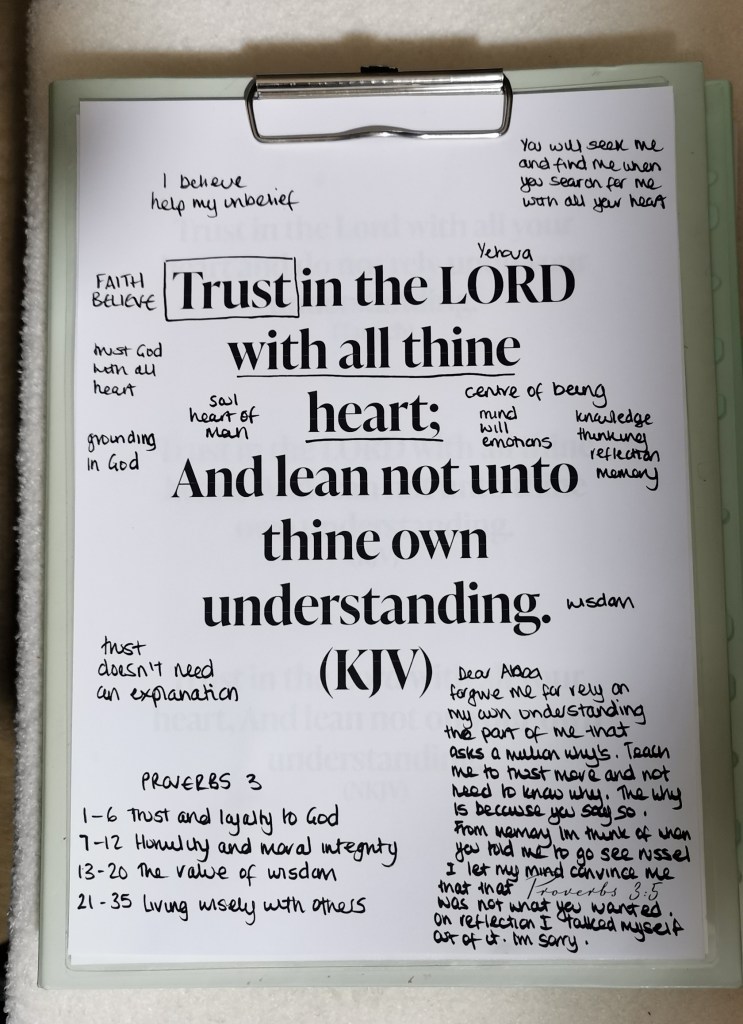 I believe
help my unbelief
You will seek me
and find me when
you search for me
with all your heart
Yehova
FAITH
BELIEVE
Trust in the LORD
with all thine
heart;
And lean not unto
thine own
understanding.
(KJV)
trust God
with all
heart
grounding
in God
soul
heart of
man
centre of being
mind
will
emotions
knowledge
thinking
reflection
memory
wisdom
trust
doesn't need
an explanation
PROVERBS 3
1-6 Trust and loyalty to God
7-12 Humility and moral integrity
13-20 The value of wisdom
21-35 Living wisely with others
Dear Abba
forgive me for rely on
my own understanding
the part of me that
asks a million why's. Teach
me to trust more and not
need to know why. The why
is because you say so.
From memory Im think of when
you told me to go see russel
I let my mind convince me
that that
Proverbs 3:5
was not what you wanted.
On reflection I talked myself
out of it. Im sorry.